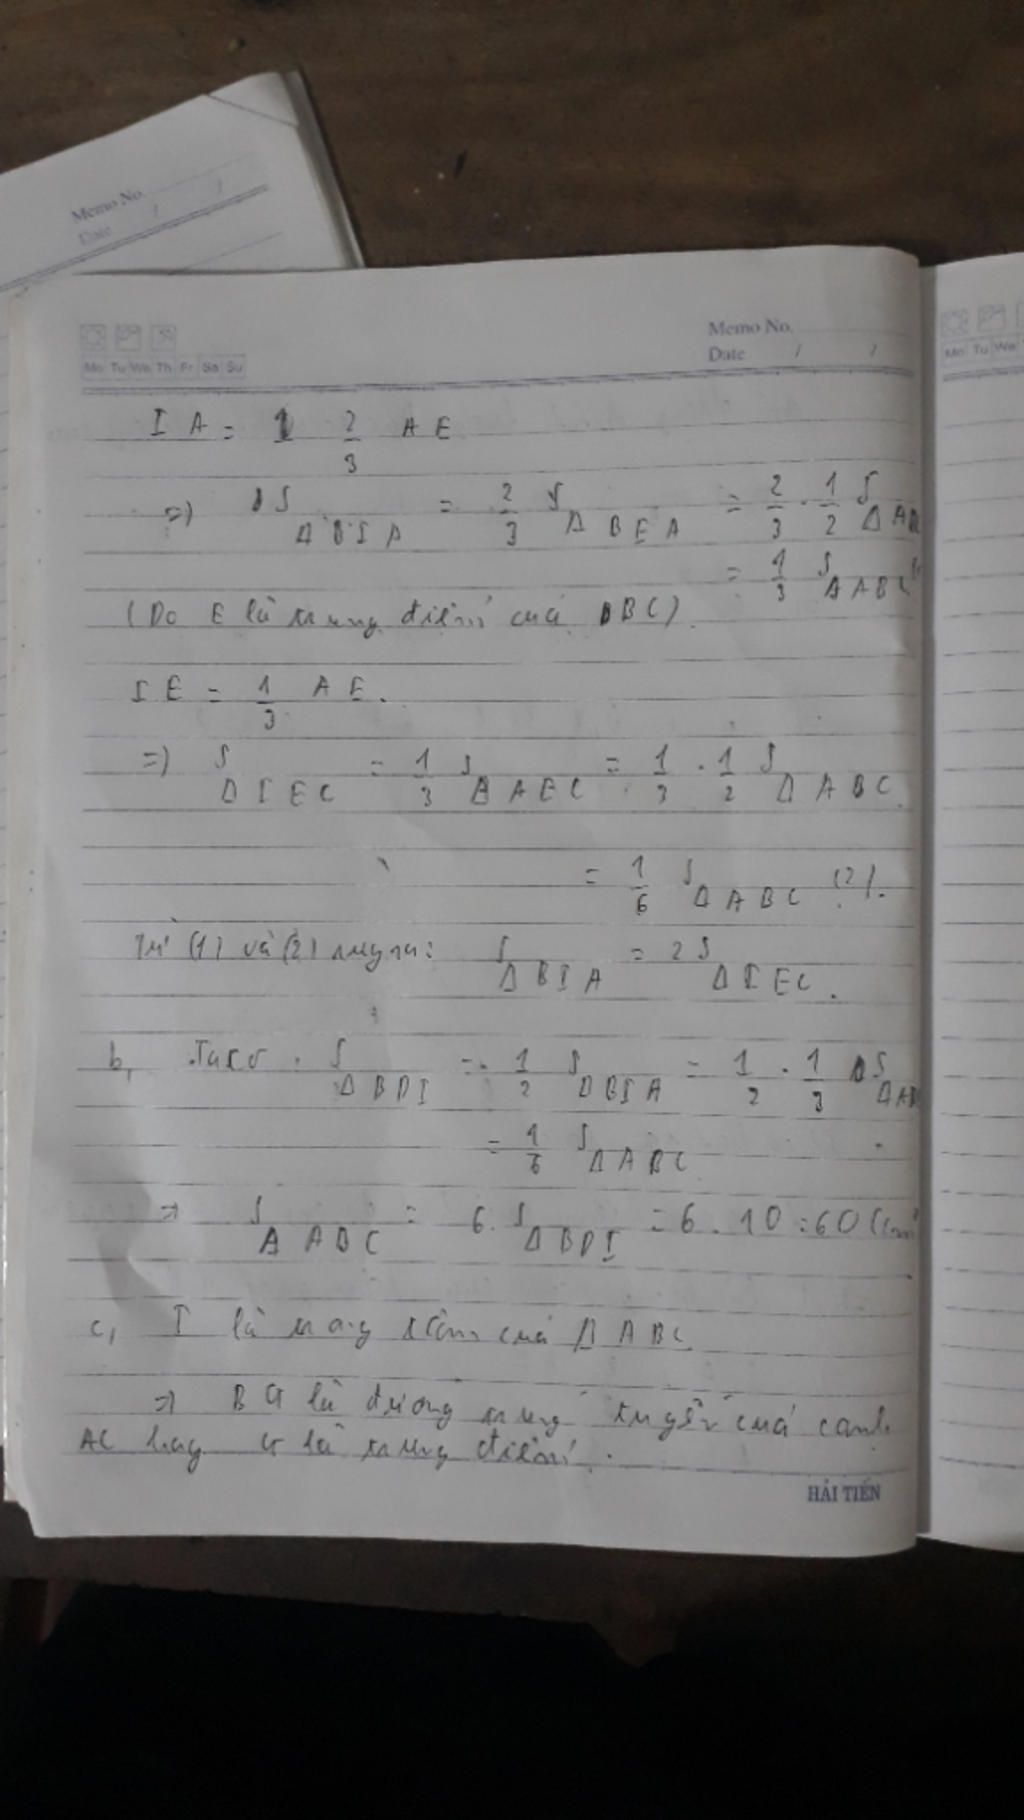 Memo No.
Date / /
Memo No.
Date / /
Mo Tu We Th Fr Sa Su
Mo Tu We
IA = 2/3 AE
=) S ΔBIA = 2/3 S ΔBEA = 2/3 . 1/2 S ΔAB
= 1/3 S ΔABC
(Do E là trung điểm của BC)
IE = 1/3 AE.
=) S ΔIEC = 1/3 S ΔAEC = 1/3 . 1/2 S ΔABC
= 1/6 S ΔABC (2).
Từ (1) và (2) suy ra: S ΔBIA = 2 S ΔIEC.
b, Ta có . S ΔBDI = 1/2 S ΔBIA = 1/2 . 1/3 S ΔAB
= 1/6 S ΔABC
=> S ΔABC = 6. S ΔBDI = 6 . 10 = 60 (cm²
c, I là trọng tâm của ΔABC
=> BG là đường trung tuyến của cạnh
AC hay G là trung điểm.
HẢI TIẾN